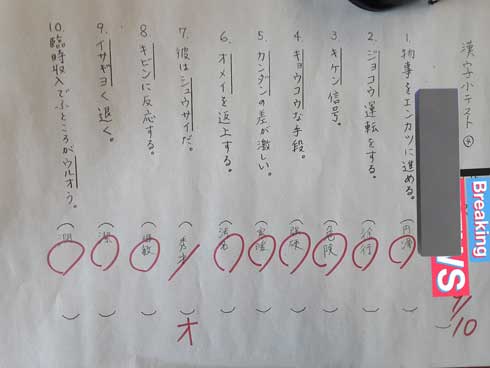 漢字小テスト④
1. 物事をエンカツに進める。(円滑)
2. ジョコウ運転をする。(徐行)
3. キケン信号。(危険)
4. キョウコウな手段。(強硬)
5. カンダンの差が激しい。(寒暖)
6. オメイを返上する。(汚名)
7. 彼はシュウサイだ。(秀才)
才
8. キビンに反応する。(機敏)
9. イサギヨく退く。(潔)
10. 臨時収入でふところがウルオう。(潤)
9/10
Breaking